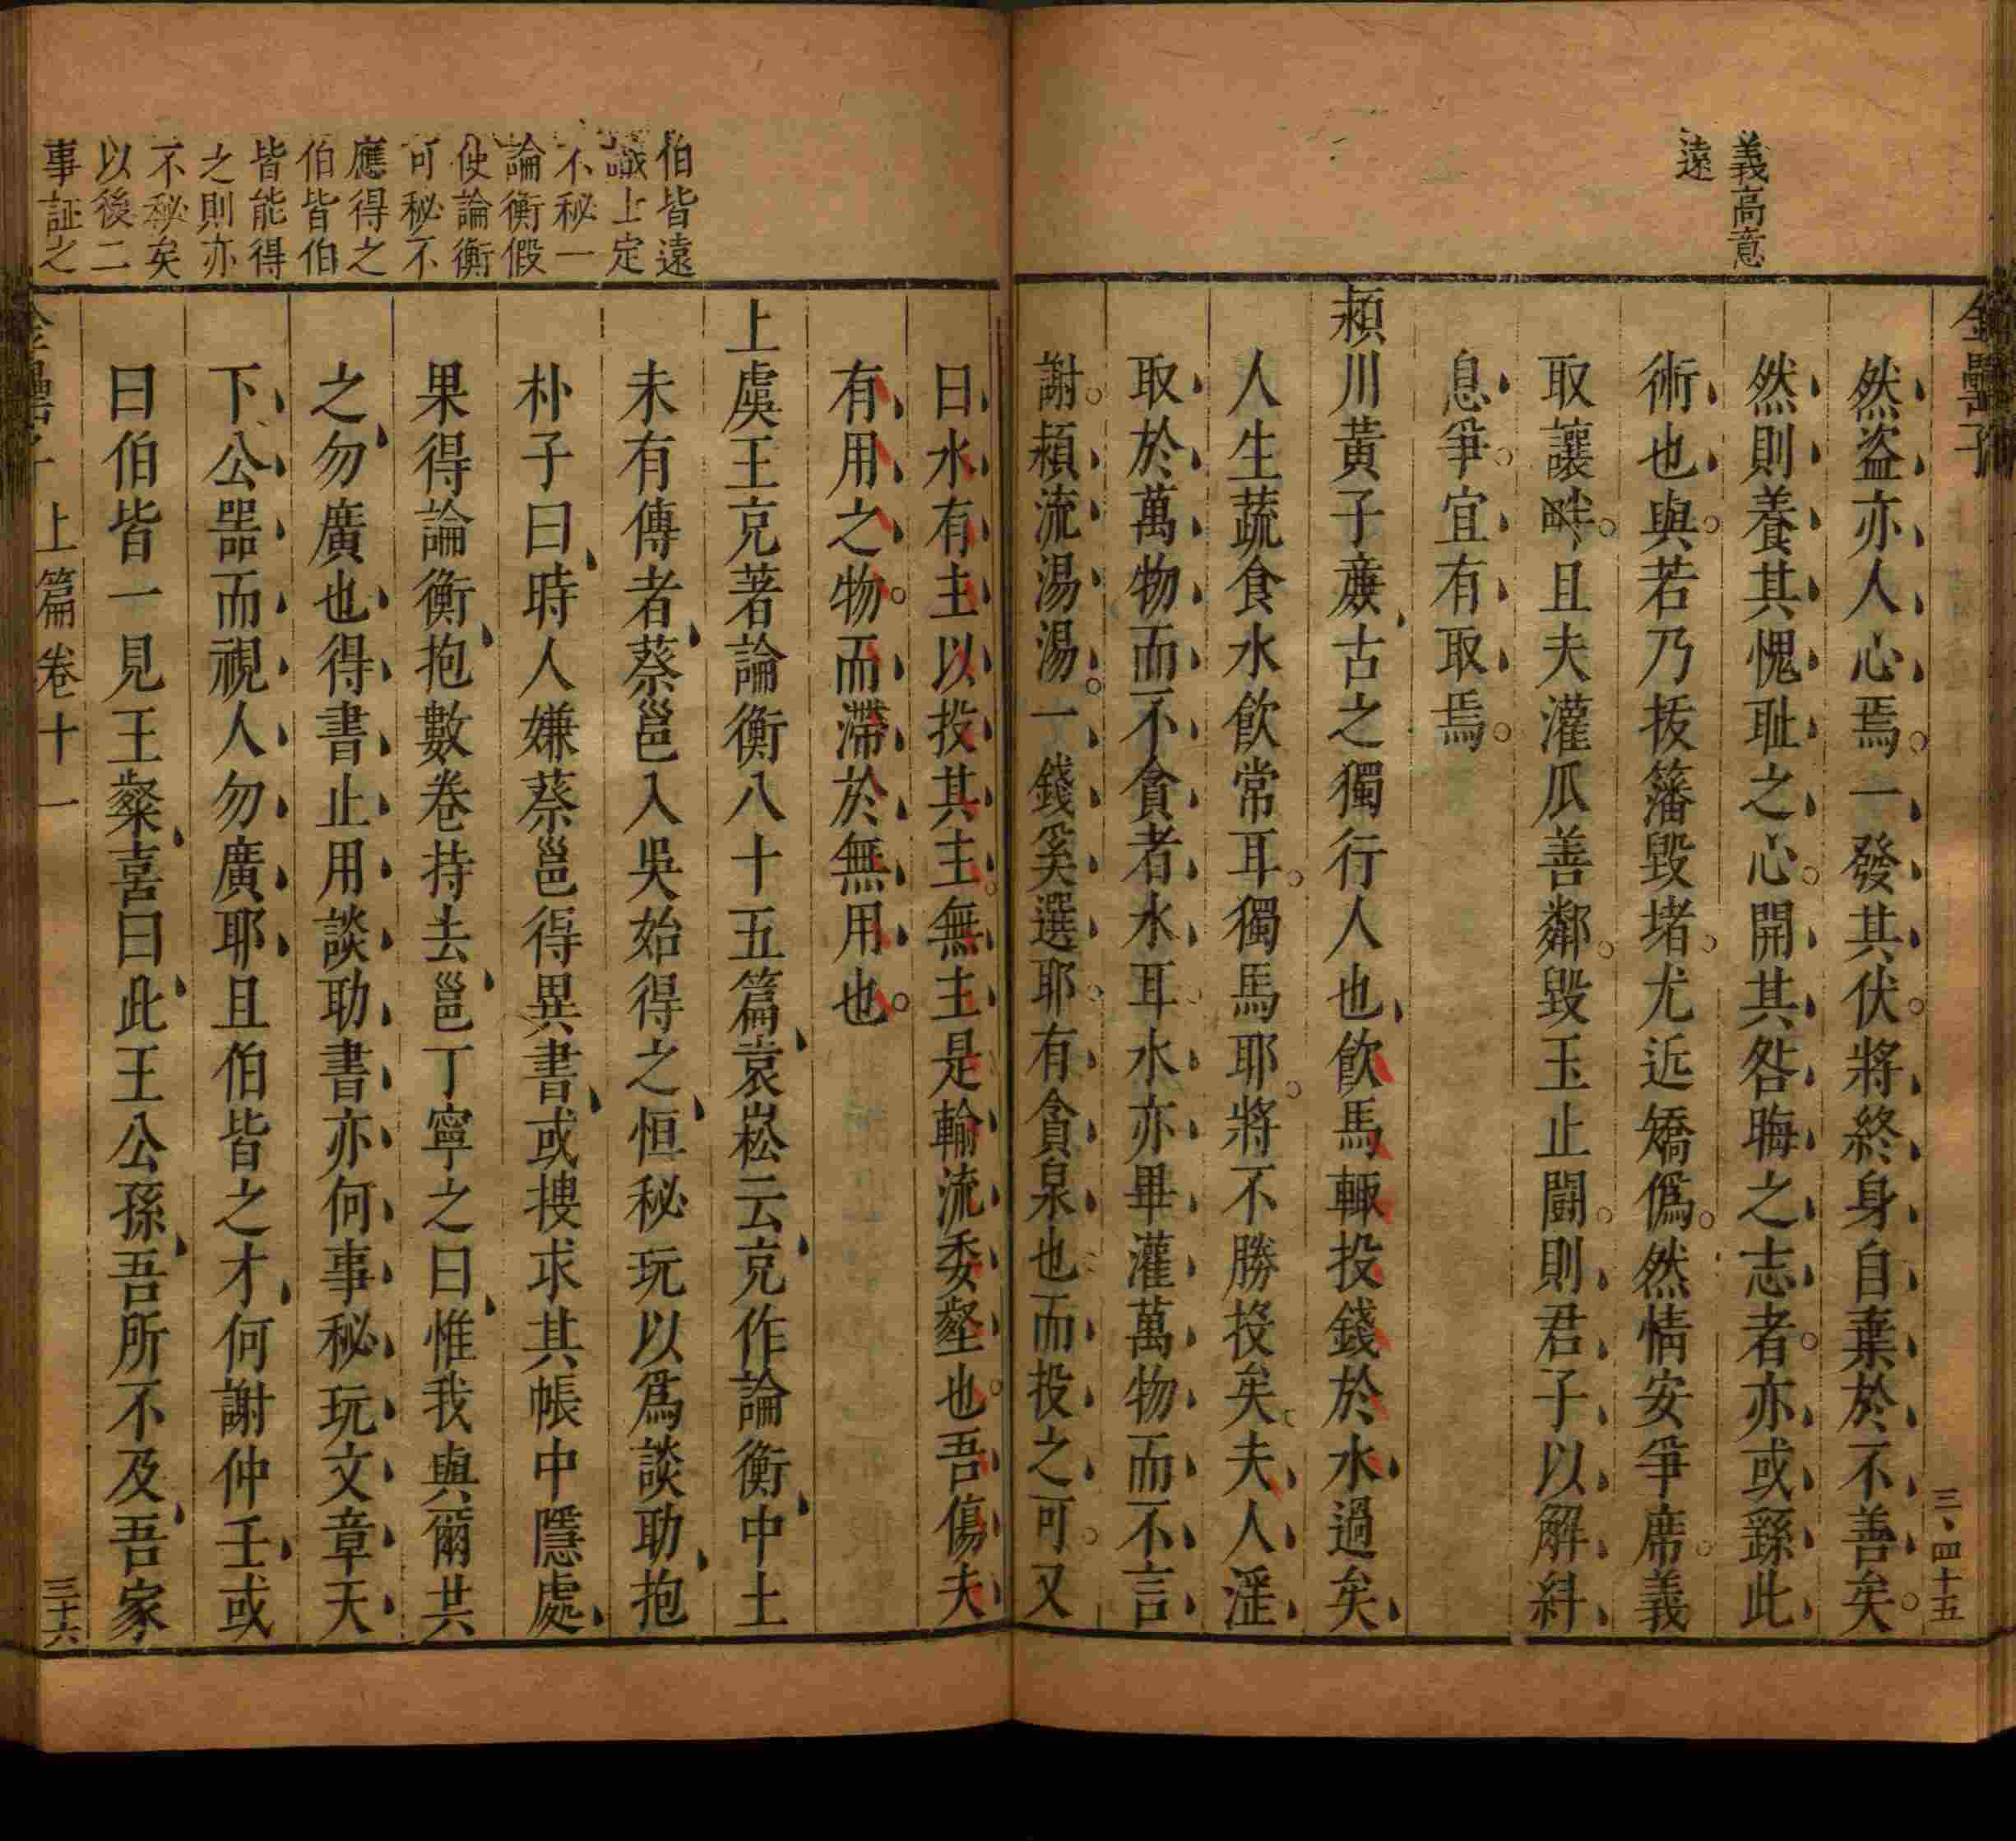 義高意
遠
金罍子
三、四十五
然盗亦人心焉。一發其伏。將終身自棄於不善矣。
然則養其愧耻之心。開其咎晦之志者。亦或繇此
術也與。若乃拔籓毀堵。尤近矯僞。然情安爭席。義
取讓畔。且夫灌瓜善鄰。毀玉止鬪。則君子以解紏
息爭。宜有取焉。
潁川黃子亷古之獨行人也飲馬輙投錢於水過矣
人生蔬食水飲常耳。獨馬耶。將不勝投矣。夫人滛
取於萬物而不貪者水耳。水亦畢灌萬物而不言
謝。潁流湯湯。一錢奚選耶。有貪泉也而投之可。又
曰水有主以投其主。無主是輸流委壑也。吾傷夫
有用之物。而滯於無用也。
上虞王充著論衡八十五篇袁崧云充作論衡中土
未有傳者蔡邕入吳始得之恒秘玩以爲談助抱
朴子曰時人嫌蔡邕得異書或搜求其帳中隱處
果得論衡抱數卷持去邕丁寧之曰惟我與爾共
之勿廣也得書止用談助書亦何事秘玩文章天
下公噐而視人勿廣耶且伯喈之才何謝仲壬或
曰伯喈一見王粲喜曰此王公孫吾所不及吾家
上篇卷十一
三十六
伯皆遠
識上定
不秘一
論衡假
使論衡
可秘不
應得之
伯皆伯
皆能得
之則亦
不秘矣
以後二
事証之